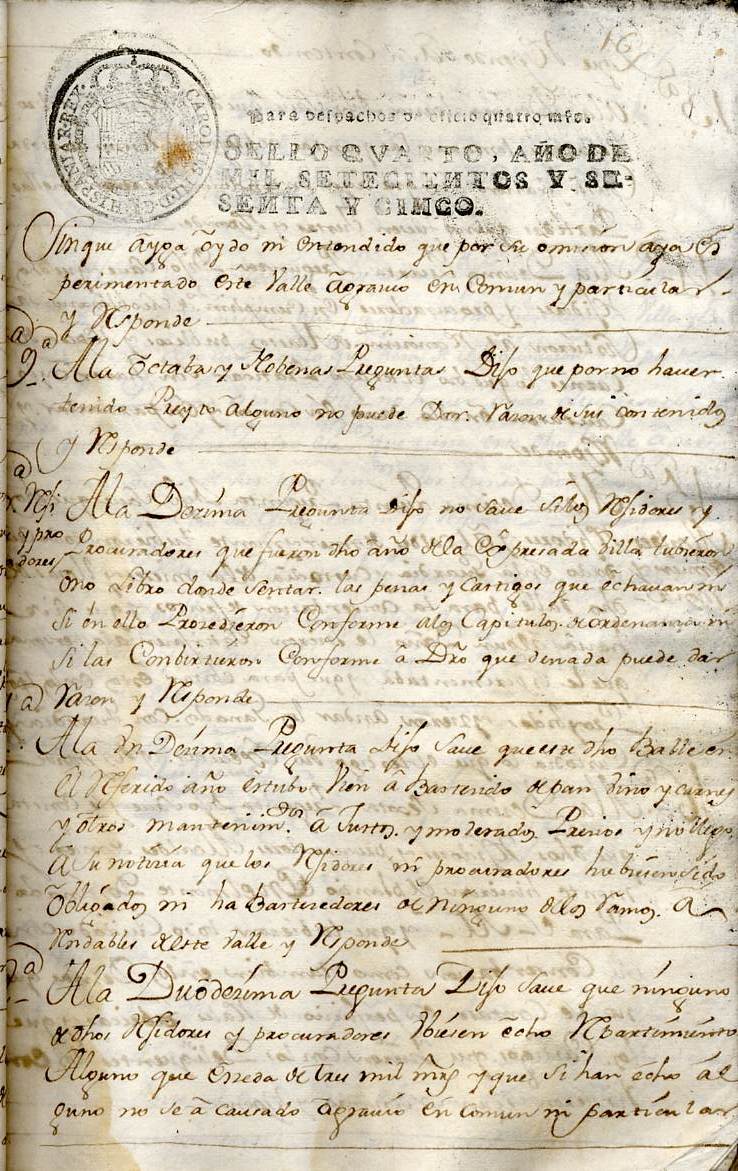 16
CAROLUS III D G HISPANIAR REX
Para despachos de oficio quatro mrs.
SELLO QVARTO, AÑO DE
MIL SETECIENTOS Y SE-
SENTA Y CINCO.
Sin que ayga oydo ni entendido que por su omision aya ex
perimentado este Valle agravio en Comun y particular
y Responde
9 a Ala Octaba y Nobena Preguntas Dijo que por no haver
tenido Pleyto alguno no puede Dar Razon de sus contenidos
y Responde
Ala Dezima Pregunta dijo no save si los Rejidores y
Procuradores que fueron dho año de la Expresada villa tubieron
o no Libro donde sentar las penas y Castigos que echavan ni
si en ello Prozedieron Conforme a los Capitulos de ordenanza ni
si las Conbirtieron Conforme a Dro que de nada puede dar
Razon y Responde
Ala Un Dezima Pregunta dijo save que este dho Balle en
el Referido año estubo bien abastezido de pan vino y carnes
y otros mantenim.dos a Justos y moderados Prezios y no llego
a su notizia que los Rejidores ni procuradores hubiesen sido
Obligados ni habastezedores de ninguno de los Ramos a
Rendables de este Valle y Responde
Ala Duodezima Pregunta Dijo save que ninguno
de dhos Rejidores y procuradores ubiesen echo Repartimiento
Alguno que exzeda de tres mil mrs y que si han echo al
guno no se a causado agravio en comun ni particular